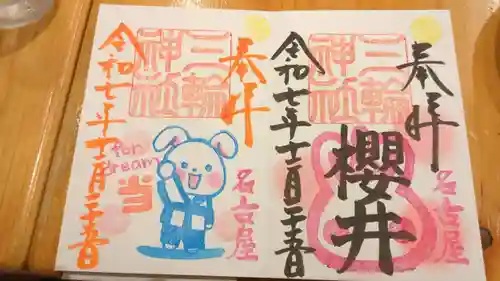 奉拝
三輪
神社
名古屋
fun
dream
当
令和七年十二月二十五日
奉拝
三輪
神社
名古屋
櫻井
令和七年十二月二十五日